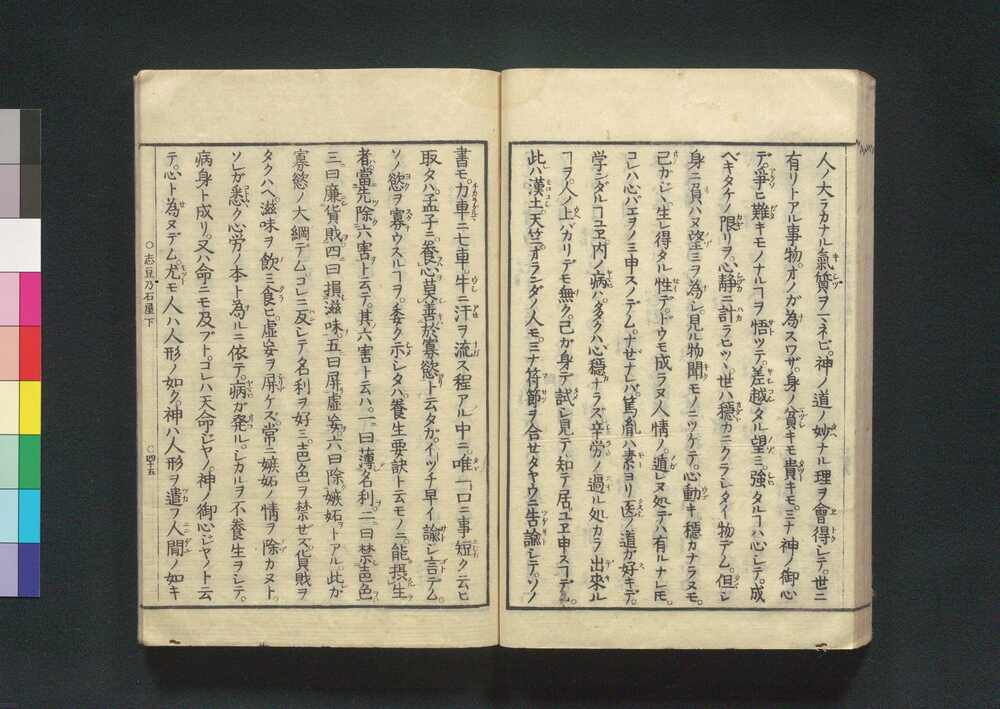 人ノ大ラカナル氣質ヲマネビ。神ノ道ノ妙ナル理ヲ會得シテ。世ニ
有リトアル事物。オノガ為スワザ。身ノ貧キモ貴キモ。ミナ神ノ御心
デ。爭ヒ難キモノナルヿヲ悟ツテ。差越タル望ミ。強タルヿハ心シテ。成
ベキタケノ限リヲ。心静ニ計ラヒツヽ世ハ穏カニクラシタイ物デム。但シ
身ニ負ハヌ望ミヲ為シ。見ル物聞モノニツケテ。心動キ穏カナラヌモ。
己ガジヽ生レ得タル性デ。ドウモ成ラヌ人情ノ。遁レヌ処デハ有ルナレ𪜈。
コレハ心バエヲノミ申スノデム。ナゼナレバ。篤胤ハ素ヨリ医ノ道ガ好キデ。
学ンダルヿユヱ。内ノ病ハ。多クハ心穏ナラズ。辛労ノ過ル処カラ出來ル
ヿヲ。人ノ上バカリデモ無ク。己ガ身デ試シ見テ。知テ居ユヱ申スヿデム。
此ハ漢土天竺。オランダノ人モ。ミナ符節ヲ合セタヤウニ告諭シテ。ソノ
書モ。力車ニ七車。牛ニ汗ヲ流ス程アル中ニ。唯一口ニ事短ク云ヒ
取タハ。孟子ニ。養心莫善於寡慾ト云タガ。イツチ早イ諭シ言デム。
ソノ慾ヲ寡ウスルヿヲ。委ク示シタハ養生要訣ト云モノニ。能摂生
者。當先除六害ト云テ。其六害ト云ハ。一曰薄名利。二曰禁声色
三曰廉貨賎四曰損滋味五曰屏虚妄六曰除嫉妬トアル。此ガ
寡慾ノ大綱デム。コレニ反シテ名利ヲ好ミ。声色ヲ禁ゼズ。貨賎ヲ
タクハヘ。滋味ヲ飲ミ食ヒ。虚妄ヲ屏ケズ。常ニ嫉妬ノ情ヲ除カヌト。
ソレガ悉ク心労ノ本ト為ルニ依テ。病ガ発ル。シカルヲ不養生ヲシテ。
病身ト成リ。又ハ命ニモ及ブト。コレハ天命ジヤノ。神ノ御心ジヤノト云
テ。心ト為ヌデム。尤モ人ハ人形ノ如ク。神ハ人形ヲ遣フ人間ノ如キ
○志豆乃石屋下
○四十五